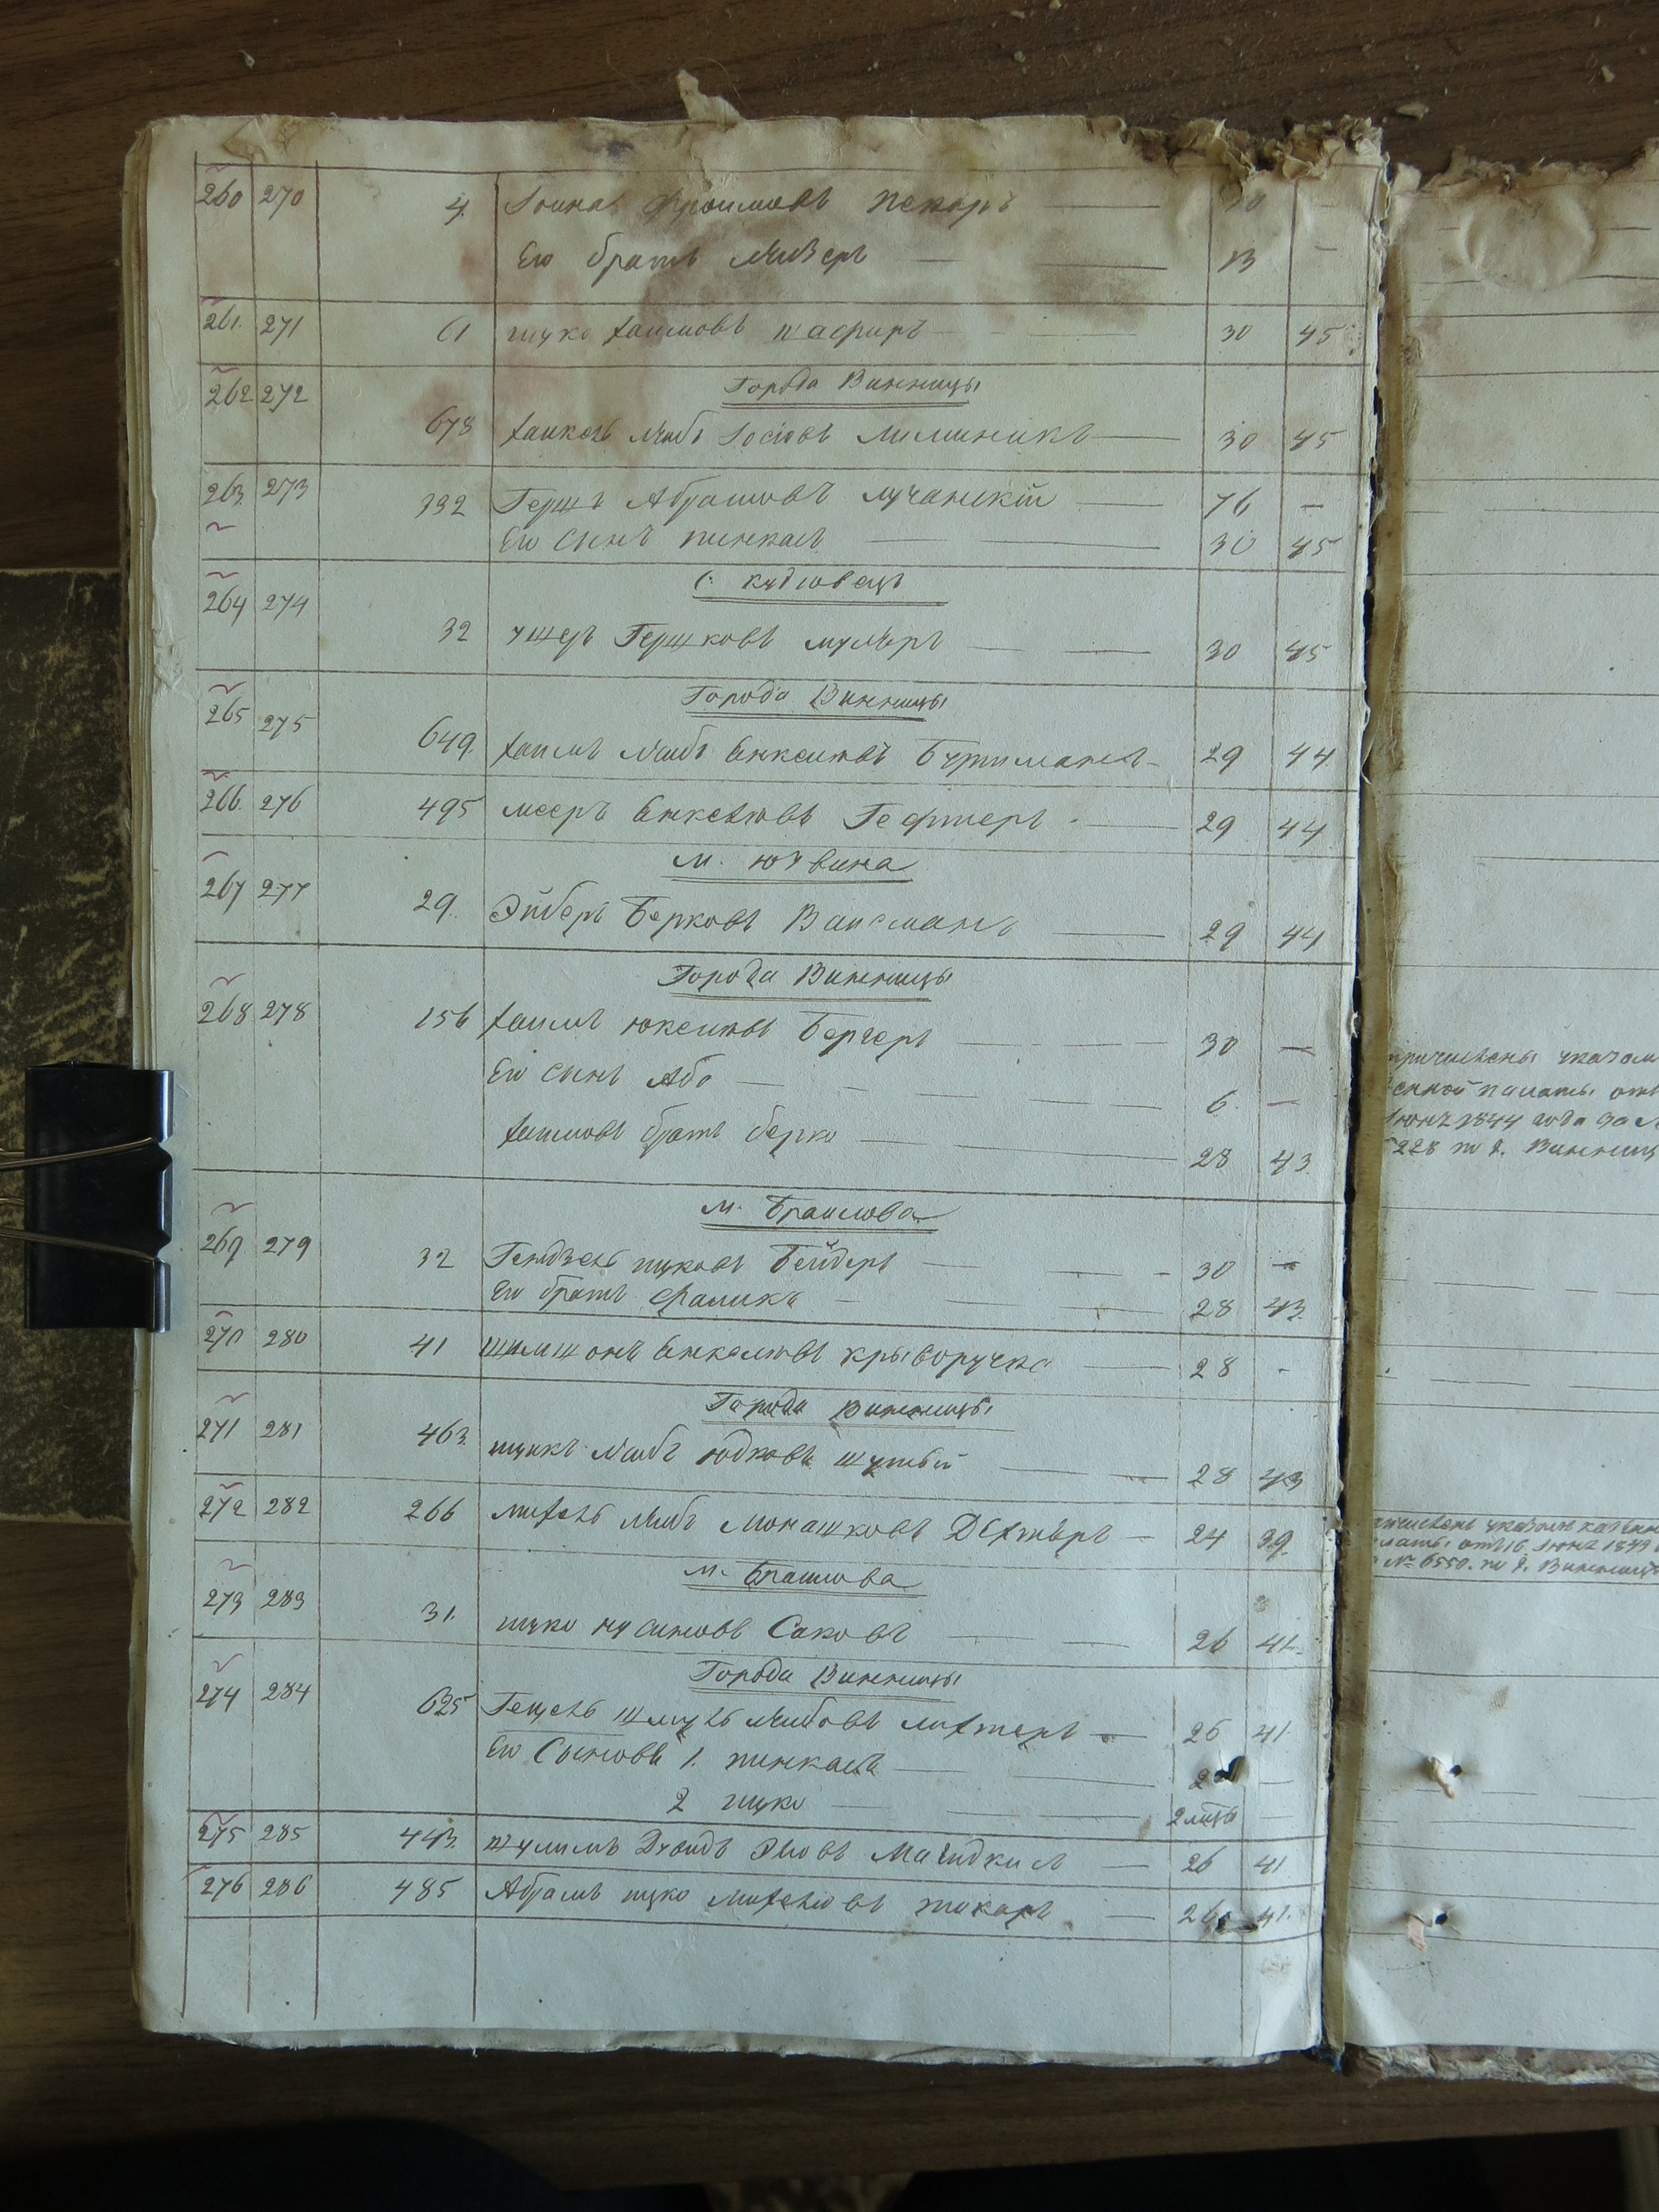 260 270 4 Іоина Фроимовъ Пекаръ — 30 —
Его братъ Лейзеръ — 13 —
261. 271 61 ицко Хаимовъ шафиръ — 30 45
Города Винницы
262 272
678 Хаикель Лейбъ Іосіовъ Лиминикъ — 30 45
263. 273 332 Гершъ Абрамовъ Лучанскій — 76 —
Его Сынъ пинкасъ — 30 45
с: кудіовецъ
264 274
32 ушеръ Гершковъ мулеръ — 30 45
Города Винницы
265 275
649. Хаимъ Лейбъ Янкелювъ Бутиманъ — 29 44
266. 276 495 Мееръ Янкелювъ Гефтеръ — 29 44
м. ютвина
267 277 29. Эйберъ Берковъ Ваисманъ — 29 44
Города Винницы
268 278 156 Хаимъ юкелювъ Бергеръ — 30 —
Его Сынъ Або — 6. —
Хаимовъ братъ берко — 28 43.
м. Браилова
269 279 32 Гендзель ицковъ Бейдеръ — 30 —
Его братъ Фаликъ — 28 43.
270 280 41 шимшонъ Янкелювъ крыворучка — 28 -
Города Винницы
271 281 463. ицикъ Лейбъ юдковъ шутый — 28 43
272 282 266 михель Лейбъ Мошковъ Дехтяръ — 24 39.
м. Браилова
273 283 31. ицко нусиновъ Саковъ — 26 41.
Города Винницы
274 284 625 Гецель шмуль Лейбовъ Лихтеръ — 26 41.
Его Сыновя 1. пинкасъ —
2 ицко — 2 лицы —
275 285 443. шулимъ Дувидъ Эліовъ Магидкисъ — 26 41
276 286 485 Абрамъ ицко михелювъ токаръ — 26 41.
причислены указомъ
палаты отъ
1844 года за
228 по г. Винницѣ
указомъ казен
палаты отъ 16
№ 6550. по г. Винницѣ